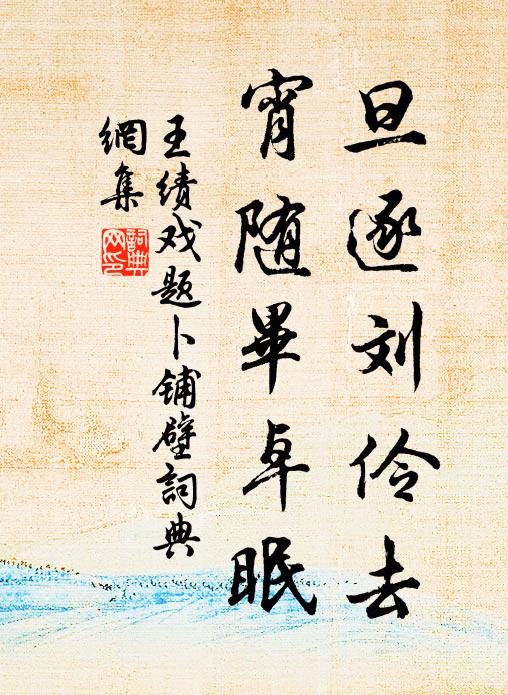 旦逐刘伶去
宵随畢卓眠
王绩戏题卜铺壁詞典
網集
詞典
网印